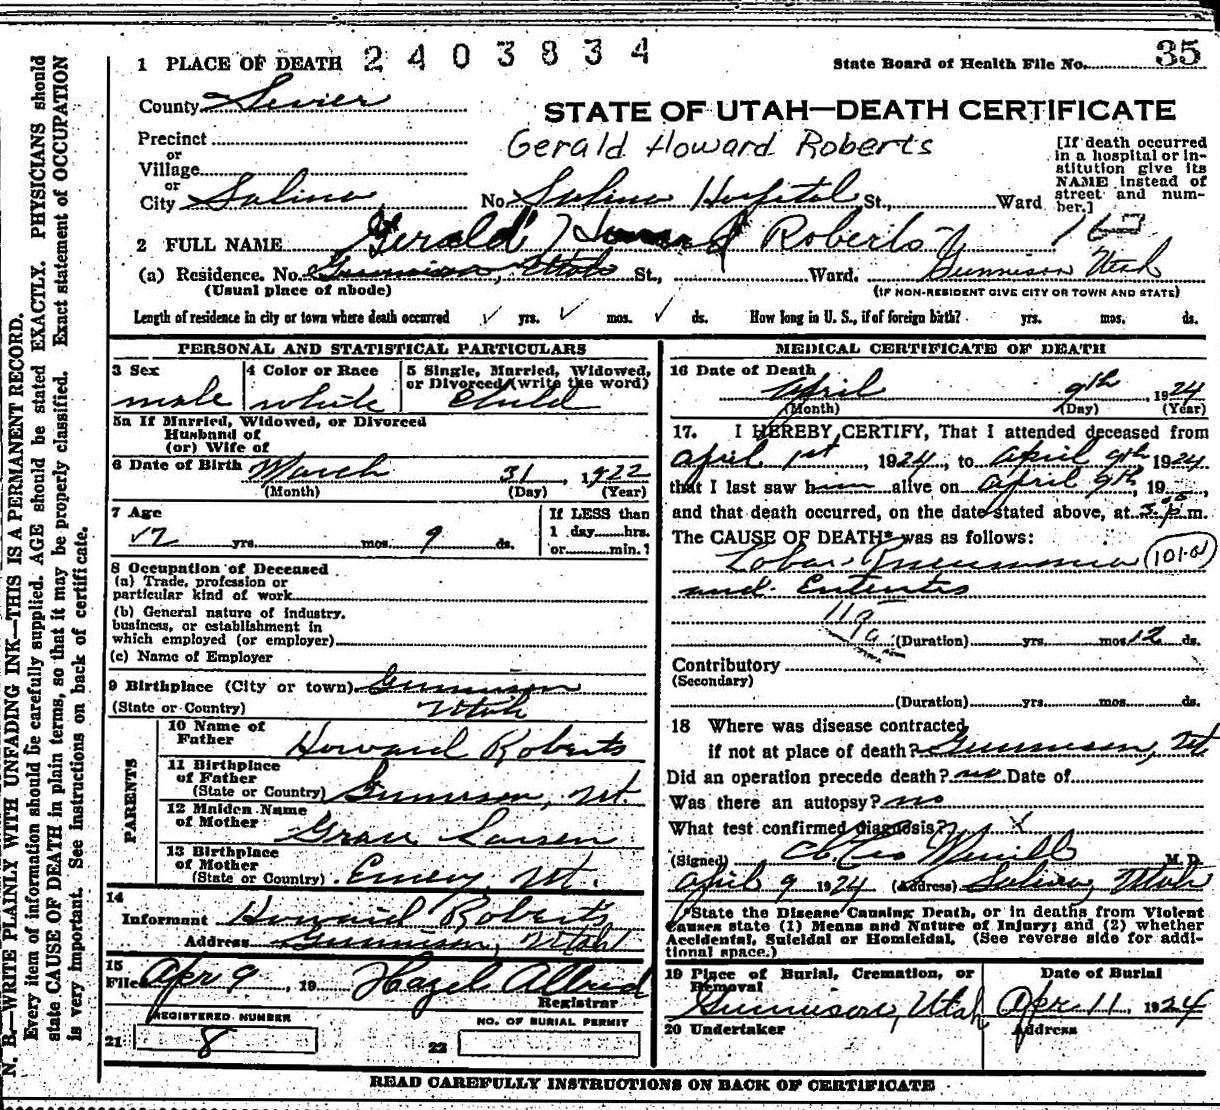 N. B.—WRITE PLAINLY WITH UNFADING INK—THIS IS A PERMANENT RECORD.
Every item of information should be carefully supplied. AGE should be stated EXACTLY. PHYSICIANS should
state CAUSE OF DEATH in plain terms, so that it may be properly classified. Exact statement of OCCUPATION
is very important. See instructions on back of certificate.
1 PLACE OF DEATH 2403834
State Board of Health File No. 35
County Sevier
STATE OF UTAH—DEATH CERTIFICATE
Precinct
or
Village
or
City Salina
Gerald Howard Roberts
[If death occurred
in a hospital or in-
stitution give its
NAME instead of
street and num-
ber.]
No. Salina Hospital St., Ward
2 FULL NAME Gerald Howard Roberts
(a) Residence. No. Gunnison, Utah St., Ward. Gunnison Utah
(Usual place of abode) (IF NON-RESIDENT GIVE CITY OR TOWN AND STATE)
Length of residence in city or town where death occurred ✓ yrs. ✓ mos. ✓ ds. How long in U. S., if of foreign birth? yrs. mos. ds.
PERSONAL AND STATISTICAL PARTICULARS
3 Sex male
4 Color or Race white
5 Single, Married, Widowed,
or Divorced (write the word)
Child
5a If Married, Widowed, or Divorced
Husband of
(or) Wife of
6 Date of Birth March 31, 1922
(Month) (Day) (Year)
7 Age
yrs. mos. 9 ds.
If LESS than
1 day hrs.
or min.?
8 Occupation of Deceased
(a) Trade, profession or
particular kind of work
(b) General nature of industry.
business, or establishment in
which employed (or employer)
(c) Name of Employer
9 Birthplace (City or town) Gunnison
(State or Country) Utah
PARENTS
10 Name of
Father Howard Roberts
11 Birthplace
of Father
(State or Country) Gunnison, Ut.
12 Maiden Name
of Mother Grace Larsen
13 Birthplace
of Mother
(State or Country) Emery, Ut.
14
Informant Howard Roberts
Address Gunnison, Utah
15
Filed Apr 9, 19 Hazel Allred
Registrar
REGISTERED NUMBER
21 8
NO. OF BURIAL PERMIT
22
MEDICAL CERTIFICATE OF DEATH
16 Date of Death
April 9th, 1924
(Month) (Day) (Year)
17. I HEREBY CERTIFY, That I attended deceased from
April 1st, 1924, to April 9th 1924
that I last saw him alive on April 9th, 19
and that death occurred, on the date stated above, at m.
The CAUSE OF DEATH* was as follows:
Lobar Pneumonia
and
(Duration) yrs. mos 12 ds.
Contributory
(Secondary)
(Duration) yrs. mos. ds.
18 Where was disease contracted
if not at place of death? Gunnison, Ut
Did an operation precede death? no Date of
Was there an autopsy? no
What test confirmed diagnosis?
(Signed) M. D.
April 9 1924 (Address) Salina, Utah
*State the Disease Causing Death, or in deaths from Violent
Causes state (1) Means and Nature of Injury; and (2) whether
Accidental, Suicidal or Homicidal. (See reverse side for addi-
tional space.)
19 Place of Burial, Cremation, or
Removal
Gunnison, Utah
Date of Burial
Apr 11, 1924
20 Undertaker
Address
READ CAREFULLY INSTRUCTIONS ON BACK OF CERTIFICATE